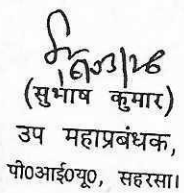 (सुभाष कुमार)
उप महाप्रबंधक,
पी०आई०यू०, सहरसा।